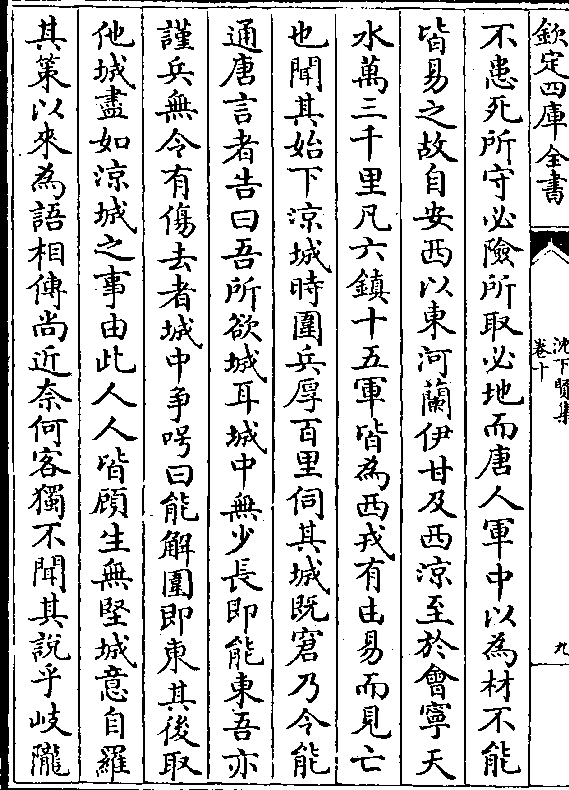 欽定四庫全書
沈下賢集
卷十
九
不患死所守必險所取必地而唐人軍中以為材不能
皆易之故自安西以東河蘭伊甘及西涼至於會寧天
水萬三千里凡六鎮十五軍皆為西戎有由易而見亡
也聞其始下涼城時圍兵厚百里伺其城既窘乃令能
通唐言者告曰吾所欲城耳城中無少長即能東吾亦
謹兵無令有傷去者城中爭呼曰能解圍即東其後取
他城盡如涼城之事由此人人皆顧生無堅城意自羅
其策以來為語相傳尚近奈何客獨不聞其說乎岐隴